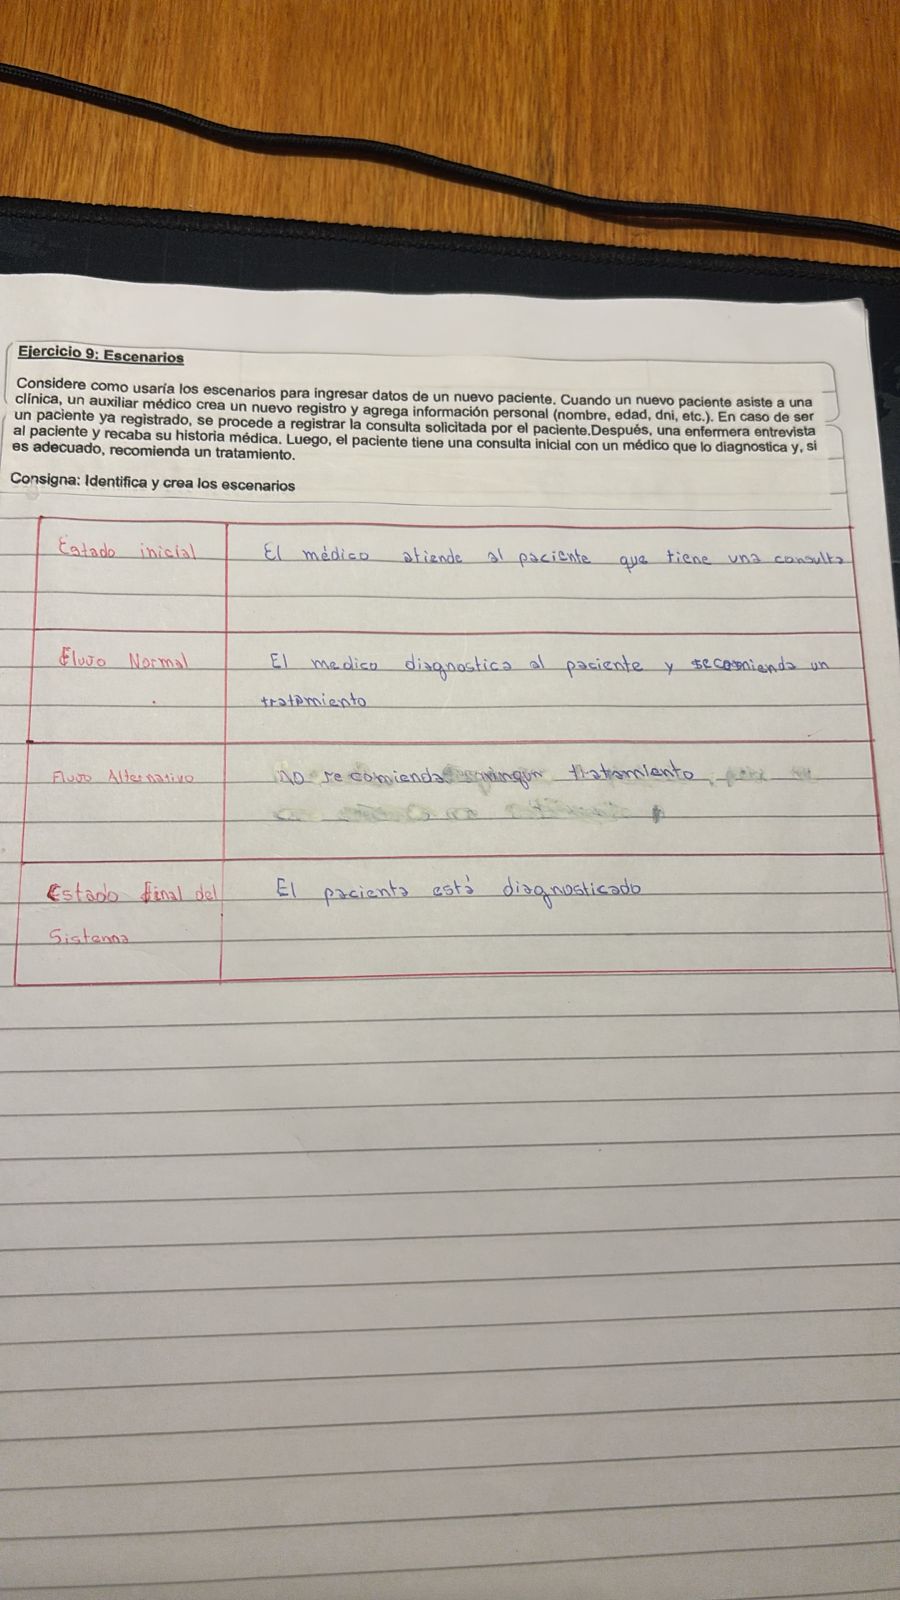 Ejercicio 9: Escenarios
Considere como usaría los escenarios para ingresar datos de un nuevo paciente. Cuando un nuevo paciente asiste a una
clínica, un auxiliar médico crea un nuevo registro y agrega información personal (nombre, edad, dni, etc.). En caso de ser
un paciente ya registrado, se procede a registrar la consulta solicitada por el paciente.Después, una enfermera entrevista
al paciente y recaba su historia médica. Luego, el paciente tiene una consulta inicial con un médico que lo diagnostica y, si
es adecuado, recomienda un tratamiento.
Consigna: Identifica y crea los escenarios
Estado inicial
El médico atiende al paciente que tiene una consulta
Flujo Normal
El medico diagnostica al paciente y recomienda un
tratamiento
Flujo Alternativo
no recomienda ningun tratamiento
Estado final del
Sistema
El paciente está diagnosticado